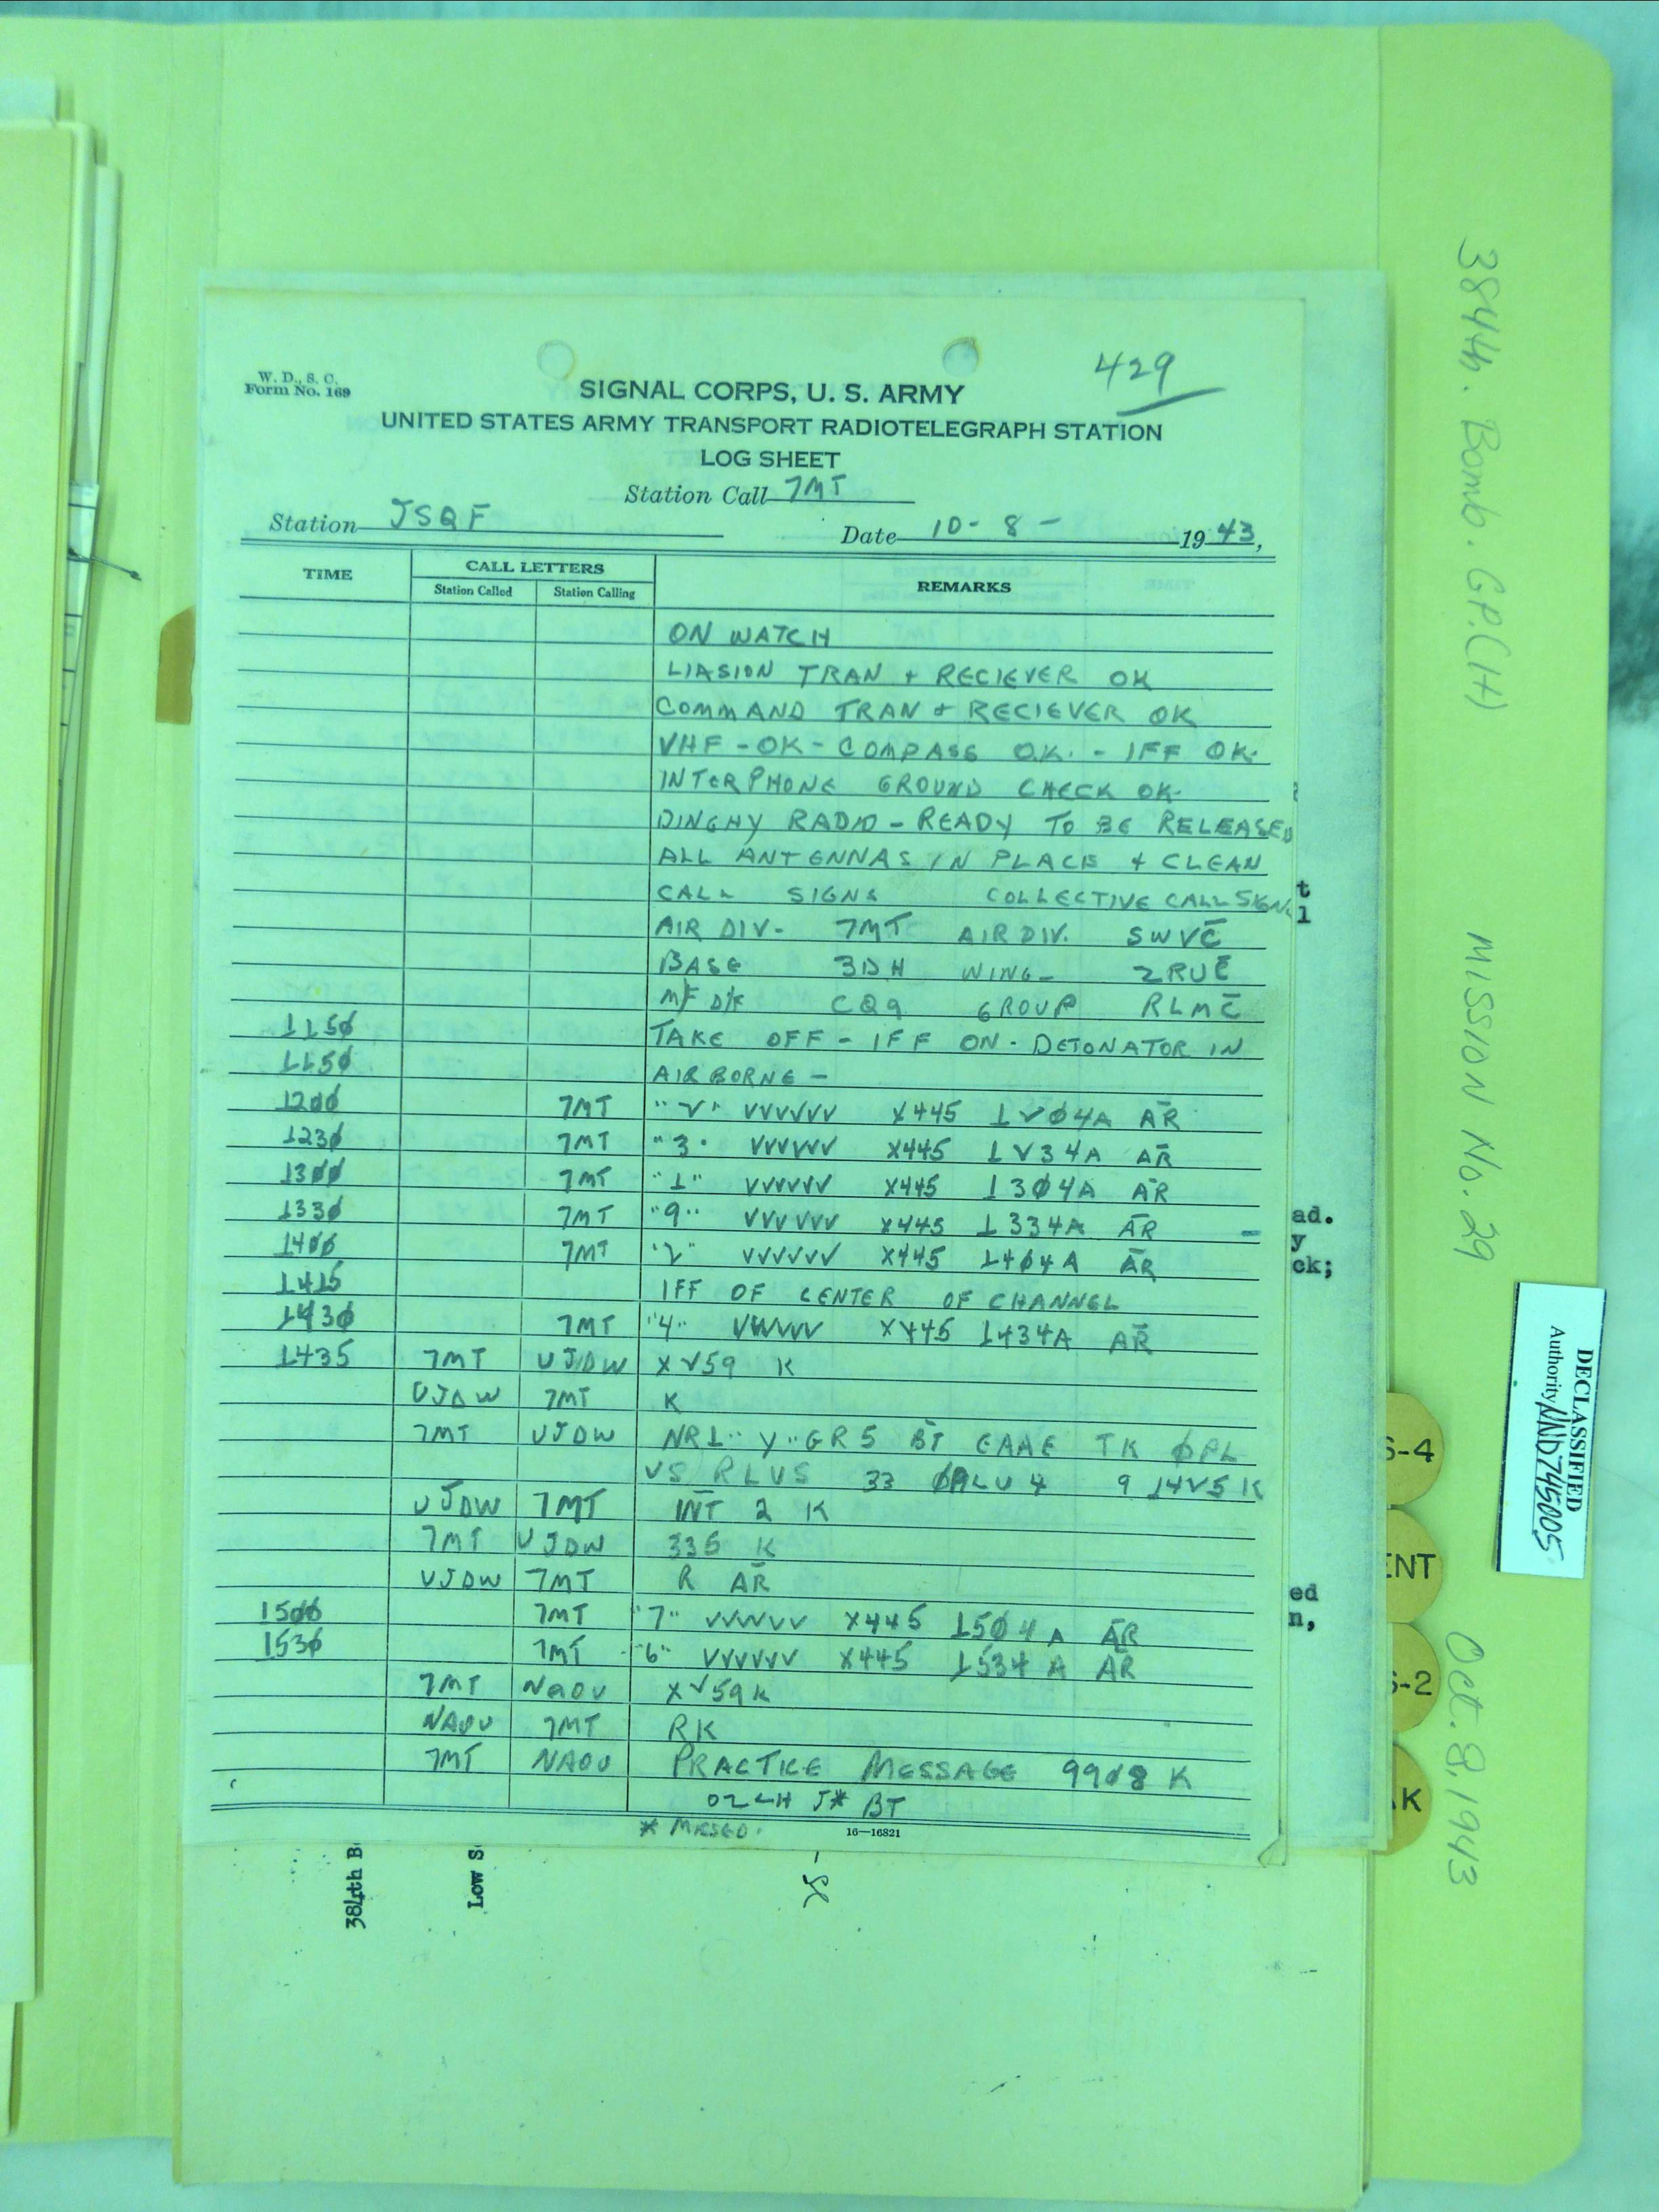 W. D., S. C.
Form No. 169
429
SIGNAL CORPS, U. S. ARMY
UNITED STATES ARMY TRANSPORT RADIOTELEGRAPH STATION
LOG SHEET
Station Call 7MT
Station JSQF Date 10-8- 1943,
TIME CALL LETTERS REMARKS
Station Called Station Calling
ON WATCH
LIASION TRAN + RECIEVER OK
COMMAND TRAN + RECIEVER OK
VHF - OK - COMPASS O.K. - IFF OK.
INTERPHONE GROUND CHECK OK.
DINGHY RADIO - READY TO BE RELEASED
ALL ANTENNAS IN PLACE + CLEAN
CALL SIGNS COLLECTIVE CALL SIGNS
AIR DIV- 7MT AIR DIV. SWVC̄
BASE 3DH WING- 2RUC̄
M/F D/F CQ9 GROUP RLMC̄
115Ø TAKE OFF - IFF ON - DETONATOR IN
115Ø AIRBORNE -
12ØØ 7MT "V" VVVVVV X445 1VØ4A ĀR̄
123Ø 7MT "3" VVVVVV X445 1V34A ĀR̄
13ØØ 7MT "1" VVVVVV X445 13Ø4A ĀR̄
133Ø 7MT "9" VVVVVV X445 1334A ĀR̄
14ØØ 7MT "2" VVVVVV X445 14Ø4A ĀR̄
1415 IFF OF CENTER OF CHANNEL
143Ø 7MT "4" VVVVVV X445 1434A ĀR̄
1435 7MT UJDW XV59 K
UJDW 7MT K
7MT UJDW NR1 "Y" GR5 B̄T̄ EAAE TK ØPL
VS RLVS 33 4 9 14V5 K
UJDW 7MT INT 2 K
7MT UJDW 335 K
UJDW 7MT R ĀR̄
15ØØ 7MT "7" VVVVVV X445 15Ø4A ĀR̄
153Ø 7MT "6" VVVVVV X445 1534A ĀR̄
7MT NAOU XV59K
NAOU 7MT RK
7MT NAOU PRACTICE MESSAGE 99Ø8 K
J* BT
* MISSED.
16—16821
t
l
ad.
y
ck;
ed
n,
384th B
Low S
384th. Bomb. GP.(H) MISSION No. 29 Oct. 8, 1943
DECLASSIFIED
Authority NND745005
S-4
ENT
S-2
K